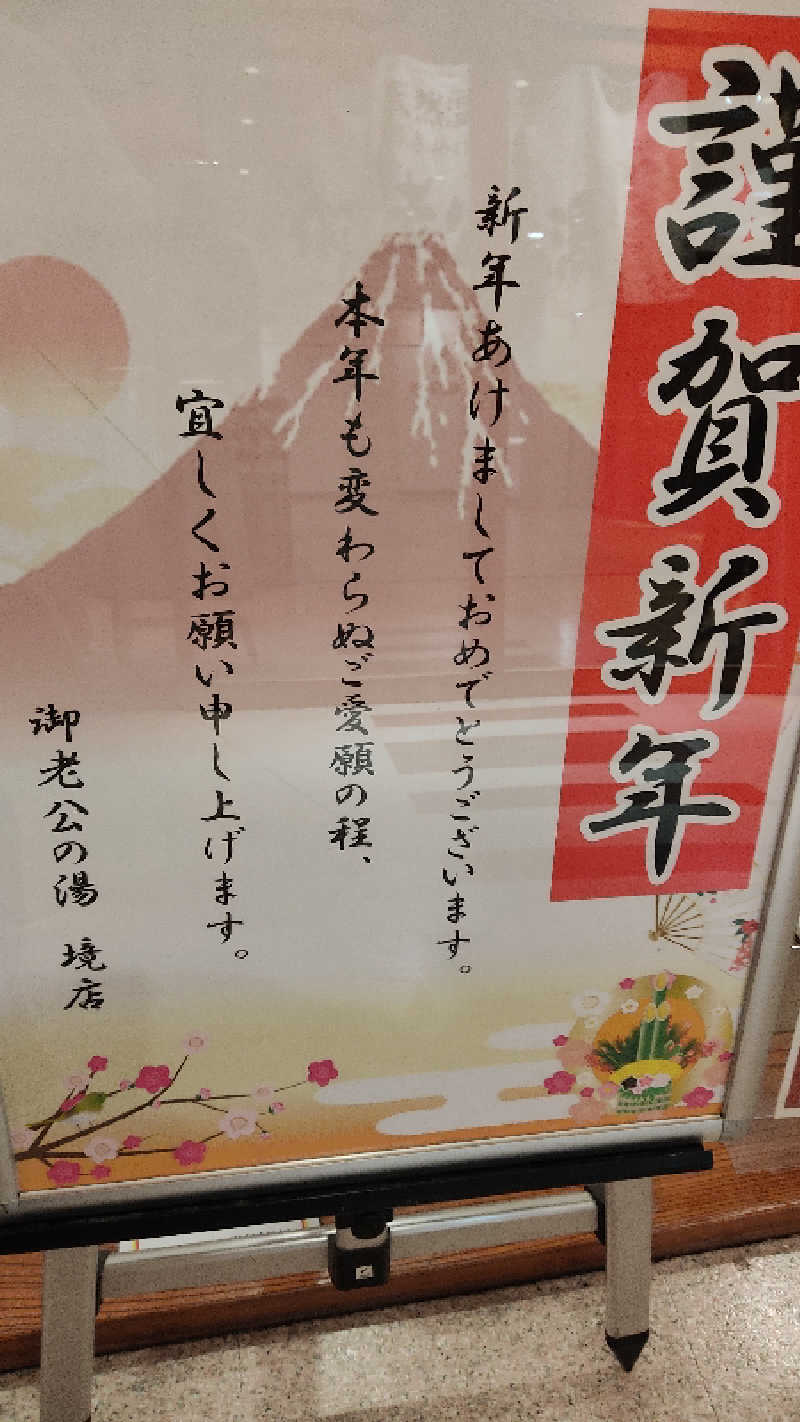 謹賀新年
新年あけましておめでとうございます。
本年も変わらぬご愛願の程、
宜しくお願い申し上げます。
御老公の湯　境店